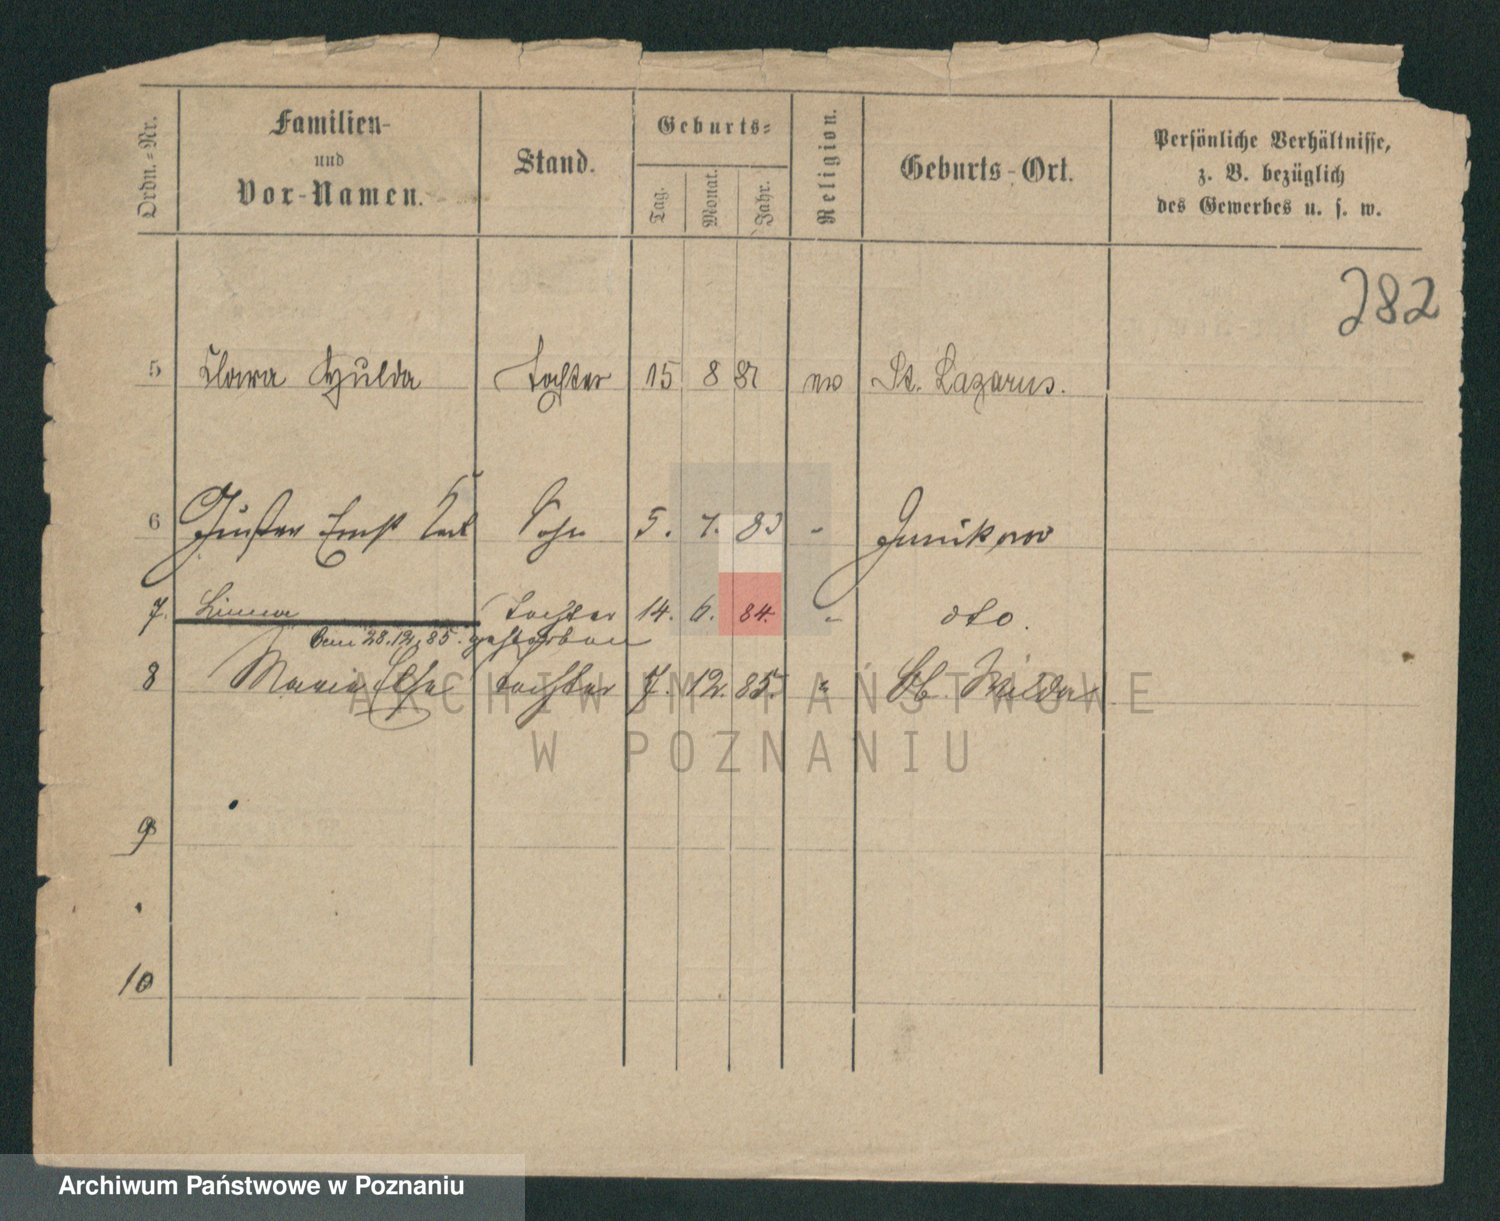 Ordn.-Nr.
Familien-
und
Vor-Namen.
Stand.
Geburts-
Tag.
Monat.
Jahr.
Religion.
Geburts-Ort.
Persönliche Verhältnisse,
z. B. bezüglich
des Gewerbes u. s. w.
282
5 Clara Hulda Tochter 15 8 81 ev St. Lazarus.
6 Gustav Ernst Carl Sohn 5. 7. 83 " Junikowo
7. Tochter 14. 6. 84. " dto.
am 28.12.85. gestorben
8 Marie Else Tochter 7. 12. 85. " Ob. Wilda
9
10
ARCHIWUM PAŃSTWOWE
W POZNANIU
Archiwum Państwowe w Poznaniu